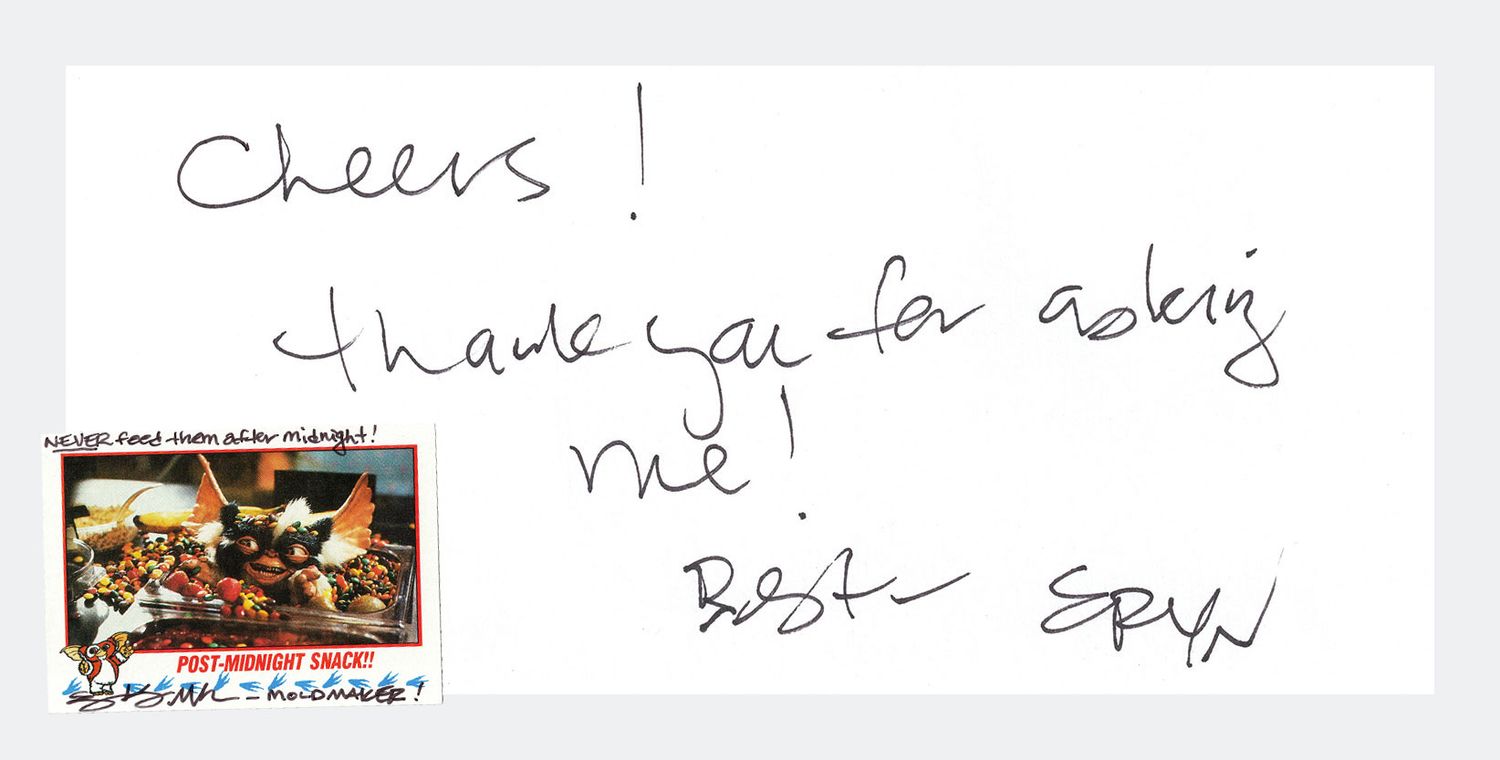 Cheers!
thank you for asking
me!
Best - SPYN
NEVER feed them after midnight!
POST-MIDNIGHT SNACK!!
- MOLDMAKER!